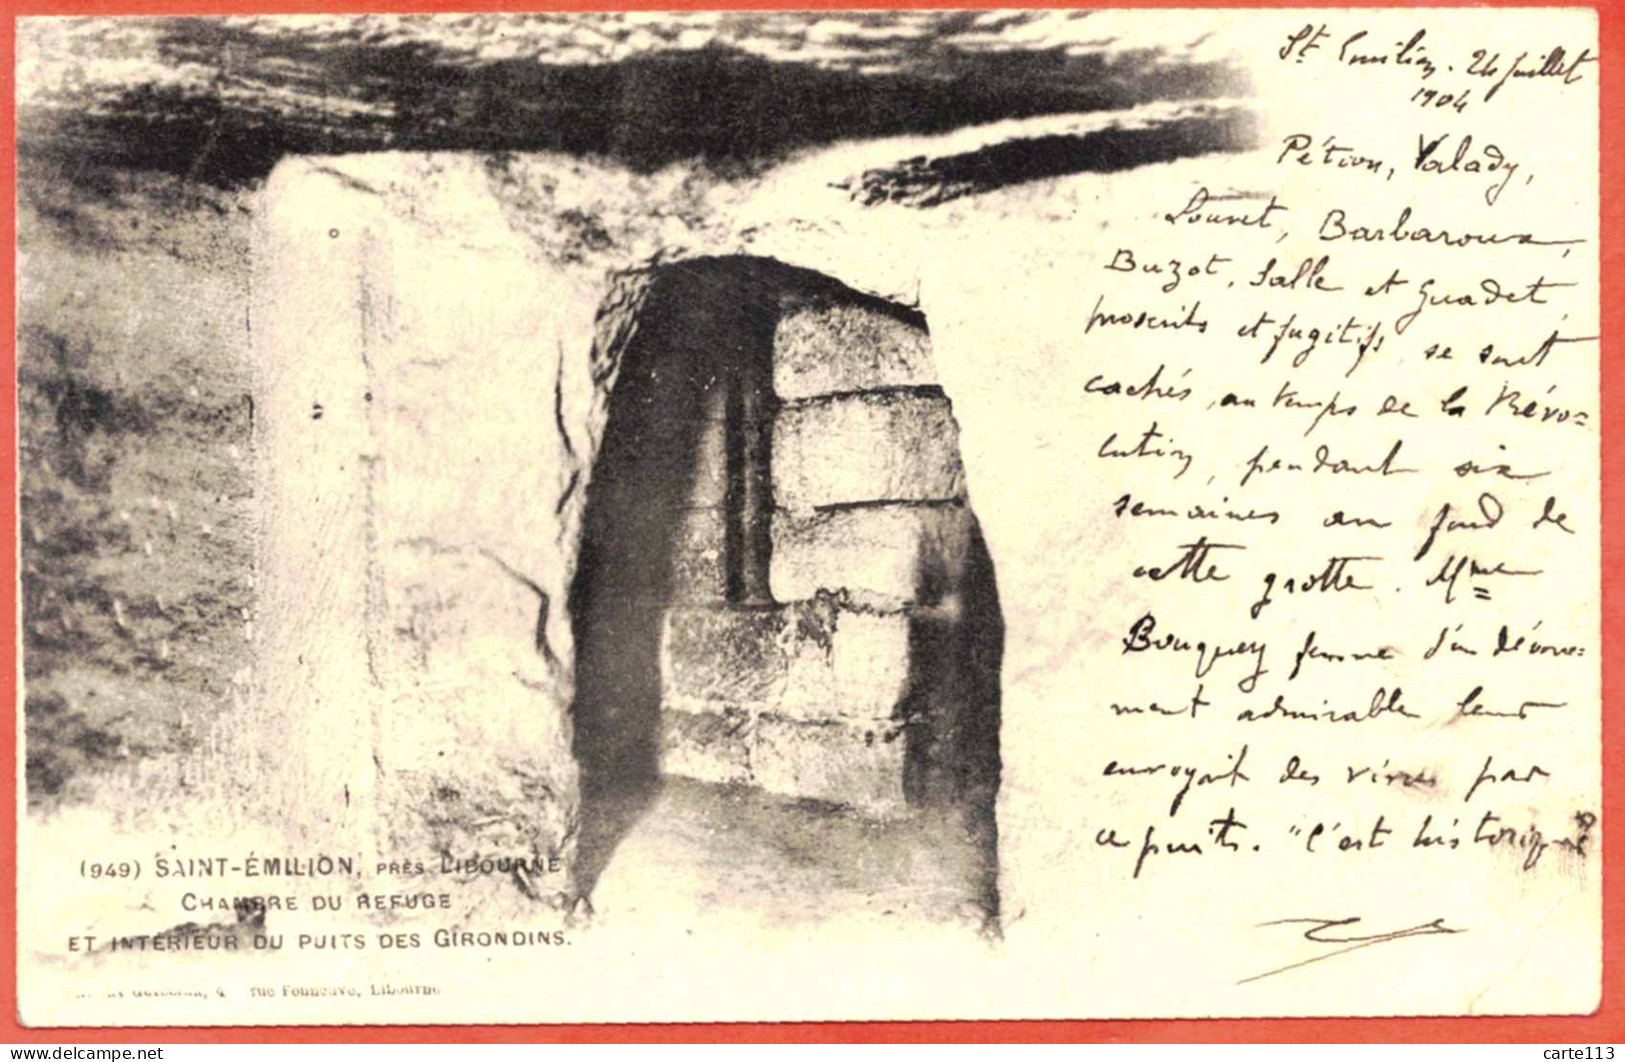 St Emilion. 24 juillet
1904
Pétion, Valady,
Louvet, Barbaroux,
Buzot, Salle et Guadet,
proscrits et fugitifs, se sont
cachés, au temps de la Révo=
lution, pendant six
semaines au fond de
cette grotte. Mme
Bouquey femme d'un dévoue=
ment admirable leur
envoyait des vivres par
ce puits. "C'est historique
(949) SAINT-ÉMILION, PRÈS LIBOURNE
CHAMBRE DU REFUGE
ET INTÉRIEUR DU PUITS DES GIRONDINS.
rue Fonneuve, Libourne
carte113